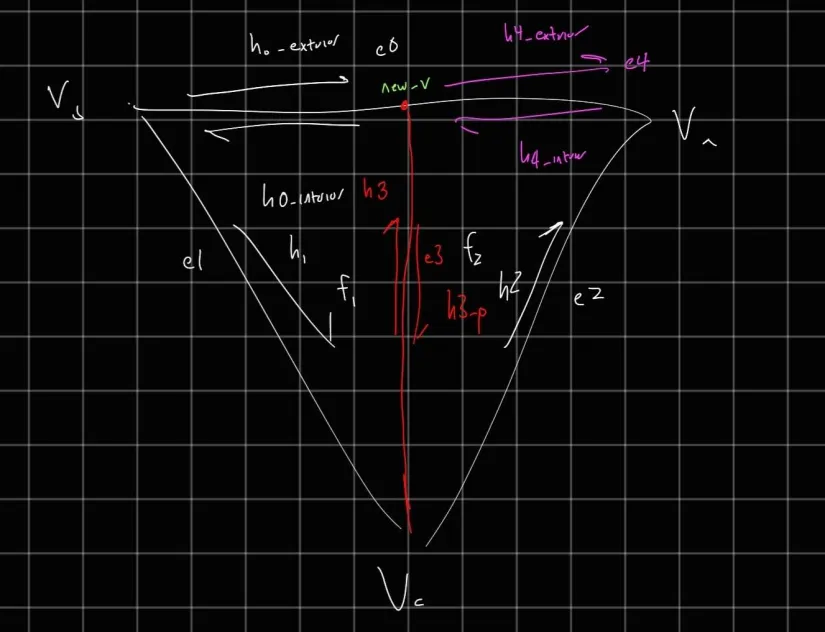 h0_exterior
e0
h4_exterior
e4
new_v
Vb
Va
h4_interior
h0_interior
h3
e1
h1
f1
e3
f2
h3_p
h2
e2
Vc